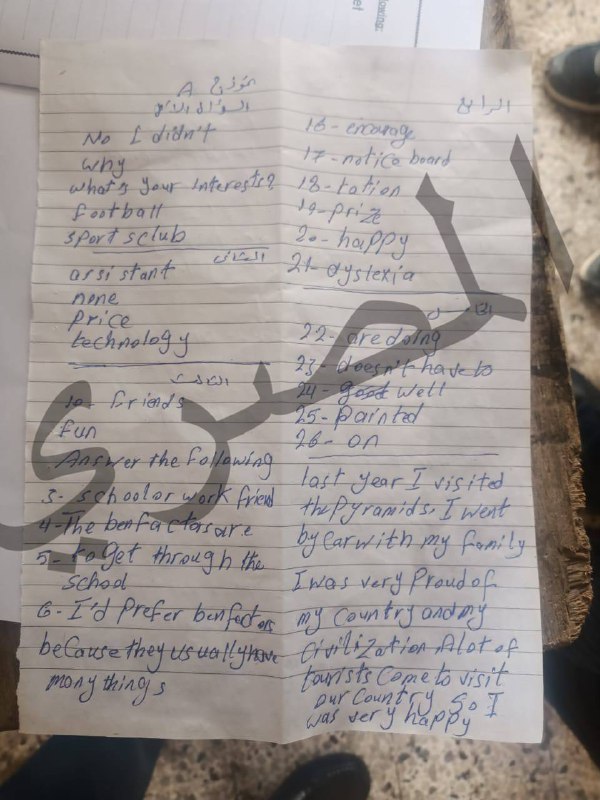 نموذج A
السؤال الاول
No I didn't
why
what's your Interests?
football
sports club
الثانى
assistant
none
price
technology
الثالث
10- friends
fun
Answer the following
3- school or work friend
4- The benfactors are
5- to get through the
school
6- I'd Prefer benfactors
because they usually have
many things
الرابع
16- encourage
17- notice board
18- ration
19- prize
20- happy
21- dyslexia
الخامس
22- are doing
23- doesn't have to
24- well
25- painted
26- on
last year I visited
the pyramids. I went
by car with my family
I was very Proud of
my country and my
civilization. A lot of
tourists come to visit
our country so I
was very happy
المصري
lowing: